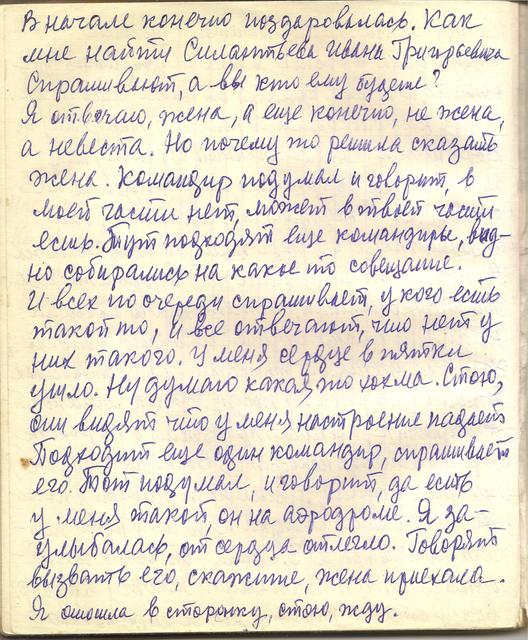 В начале конечно поздоровалась. Как
мне найти Силантьева Ивана Григорьевича
Спрашивают, а вы кто ему будете?
Я отвечаю, жена, а еще конечно, не жена,
а невеста. Но почему то решила сказать
жена. Командир подумал и говорит, в
моей части нет, может в твоей части
есть. Тут подходят еще командиры, вид-
но собирались на какое то совещание.
И всех по очереди спрашивает, у кого есть
такой то, и все отвечают, что нет у
них такого. У меня сердце в пятки
ушло. Ну думаю какая то хохма. Стою,
они видят что у меня настроение падает
Подходит еще один командир, спрашивает
его. Тот подумал, и говорит, да есть
у меня такой он на аэродроме. Я за-
улыбалась, от сердца отлегло. Говорят
вызвать его, скажите, жена приехала.
Я отошла в сторонку, стою, жду.